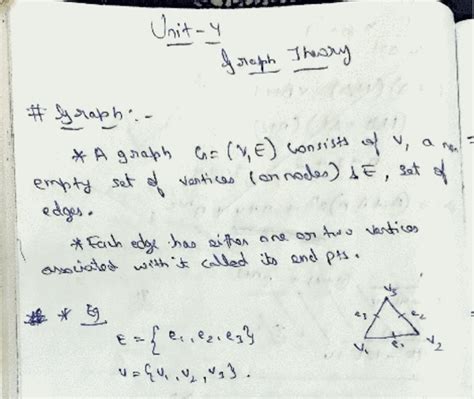 Unit-4
Graph Theory
# Graph :-
* A graph G = (V, E) consists of V, a non
empty set of vertices (or nodes) & E, set of
edges.
* Each edge has either one or two vertices
associated with it called its end pts.
* Eg
E = { e1, e2, e3 }
V = {V1, V2, V3} .
V3
e3 e2
V1 e1 V2